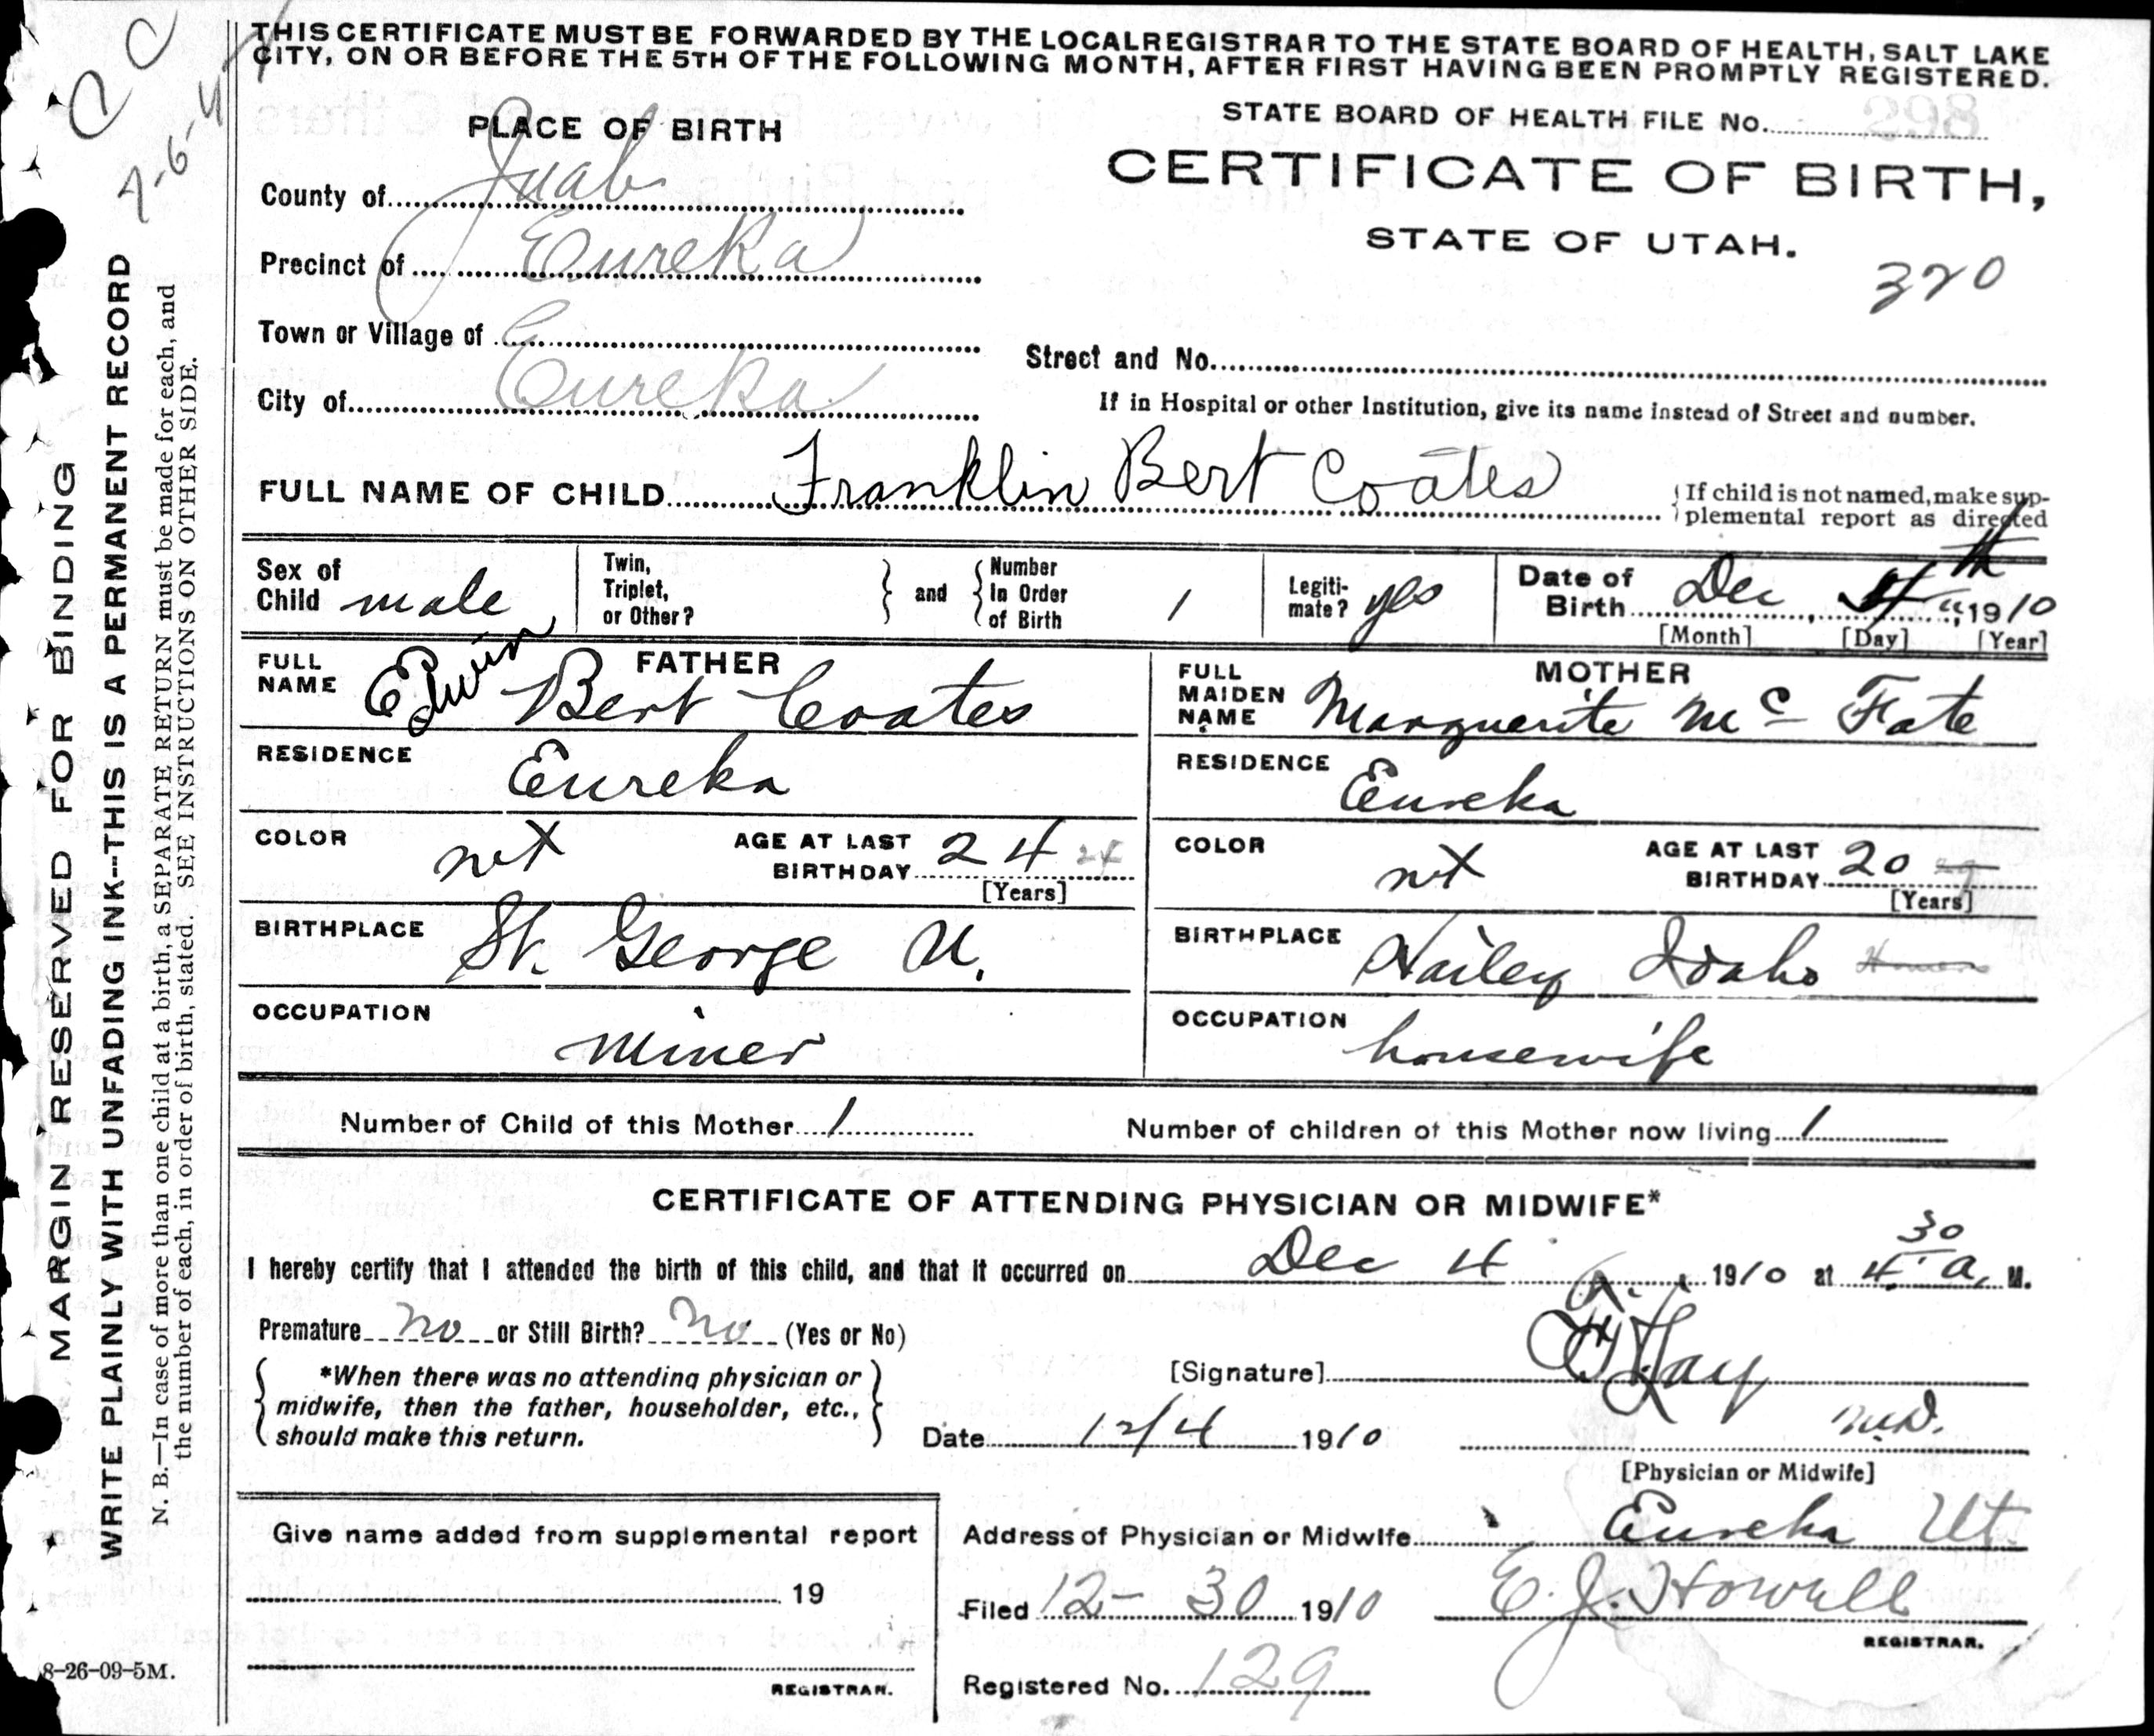 THIS CERTIFICATE MUST BE FORWARDED BY THE LOCAL REGISTRAR TO THE STATE BOARD OF HEALTH, SALT LAKE
CITY, ON OR BEFORE THE 5TH OF THE FOLLOWING MONTH, AFTER FIRST HAVING BEEN PROMPTLY REGISTERED.
PLACE OF BIRTH
STATE BOARD OF HEALTH FILE No.
CERTIFICATE OF BIRTH,
STATE OF UTAH.
320
County of Juab
Precinct of Eureka
Town or Village of
City of Eureka
Street and No.
If in Hospital or other Institution, give its name instead of Street and number.
FULL NAME OF CHILD Franklin Bert Coates
If child is not named, make sup-
plemental report as directed
Sex of Child male
Twin, Triplet, or Other?
and
Number In Order of Birth 1
Legiti-mate? yes
Date of Birth Dec 4th 1910
[Month] [Day] [Year]
FATHER
FULL NAME Edwin Bert Coates
MOTHER
FULL MAIDEN NAME Marguerite Mc Fate
RESIDENCE Eureka
RESIDENCE Eureka
COLOR
AGE AT LAST BIRTHDAY 24 24
[Years]
COLOR
AGE AT LAST BIRTHDAY 20
[Years]
BIRTHPLACE St. George U.
BIRTHPLACE Hailey Idaho
OCCUPATION miner
OCCUPATION housewife
Number of Child of this Mother 1
Number of children of this Mother now living 1
CERTIFICATE OF ATTENDING PHYSICIAN OR MIDWIFE*
I hereby certify that I attended the birth of this child, and that it occurred on Dec 4 1910 at 4 30 a. M.
Premature no or Still Birth? no (Yes or No)
*When there was no attending physician or
midwife, then the father, householder, etc.,
should make this return.
[Signature]
Date 12/4 1910
M.D.
[Physician or Midwife]
Give name added from supplemental report
19
REGISTRAR.
Address of Physician or Midwife Eureka Ut.
Filed 12-30 1910
E. J. Howell
REGISTRAR.
Registered No. 129
8-26-09-5M.
MARGIN RESERVED FOR BINDING
WRITE PLAINLY WITH UNFADING INK--THIS IS A PERMANENT RECORD
N. B.—In case of more than one child at a birth, a SEPARATE RETURN must be made for each, and
the number of each, in order of birth, stated. SEE INSTRUCTIONS ON OTHER SIDE.